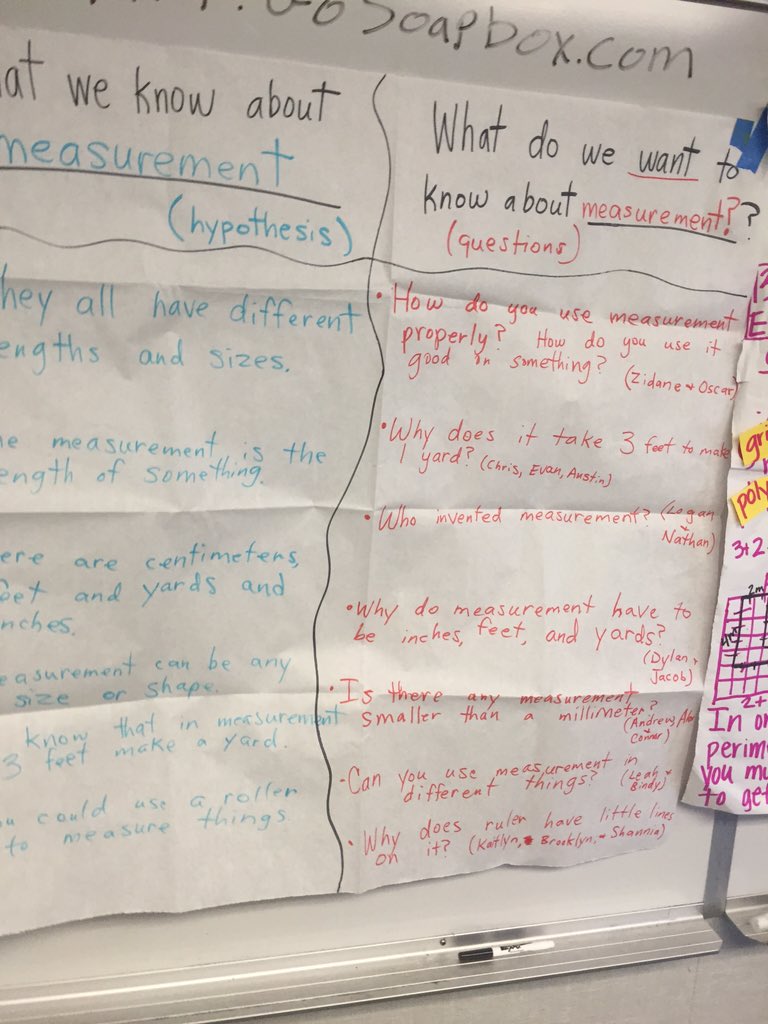 Soapbox.com
at we know about
measurement
(hypothesis)
hey all have different
engths and sizes.
e measurement is the
ength of something.
ere are centimeters,
eet and yards and
nches.
easurement can be any
size or shape.
know that in measurement
3 feet make a yard.
u could use a roller
to measure things
What do we want to
know about measurement??
(questions)
• How do you use measurement
properly? How do you use it
good on something?
(Zidane + Oscar)
• Why does it take 3 feet to make
1 yard? (Chris, Evan, Austin)
• Who invented measurement? (Logan
+
Nathan)
• Why do measurement have to
be inches, feet, and yards?
(Dylan +
Jacob)
• Is there any measurement
smaller than a millimeter?
(Andrew,
Connor)
• Can you use measurement in
different things? (Leah +
Bindy)
• Why does ruler have little lines
on it? (Katlyn, Brooklyn, + Shannia)
gri
poly
3+2
2m
2+
In or
perim
you mu
to get